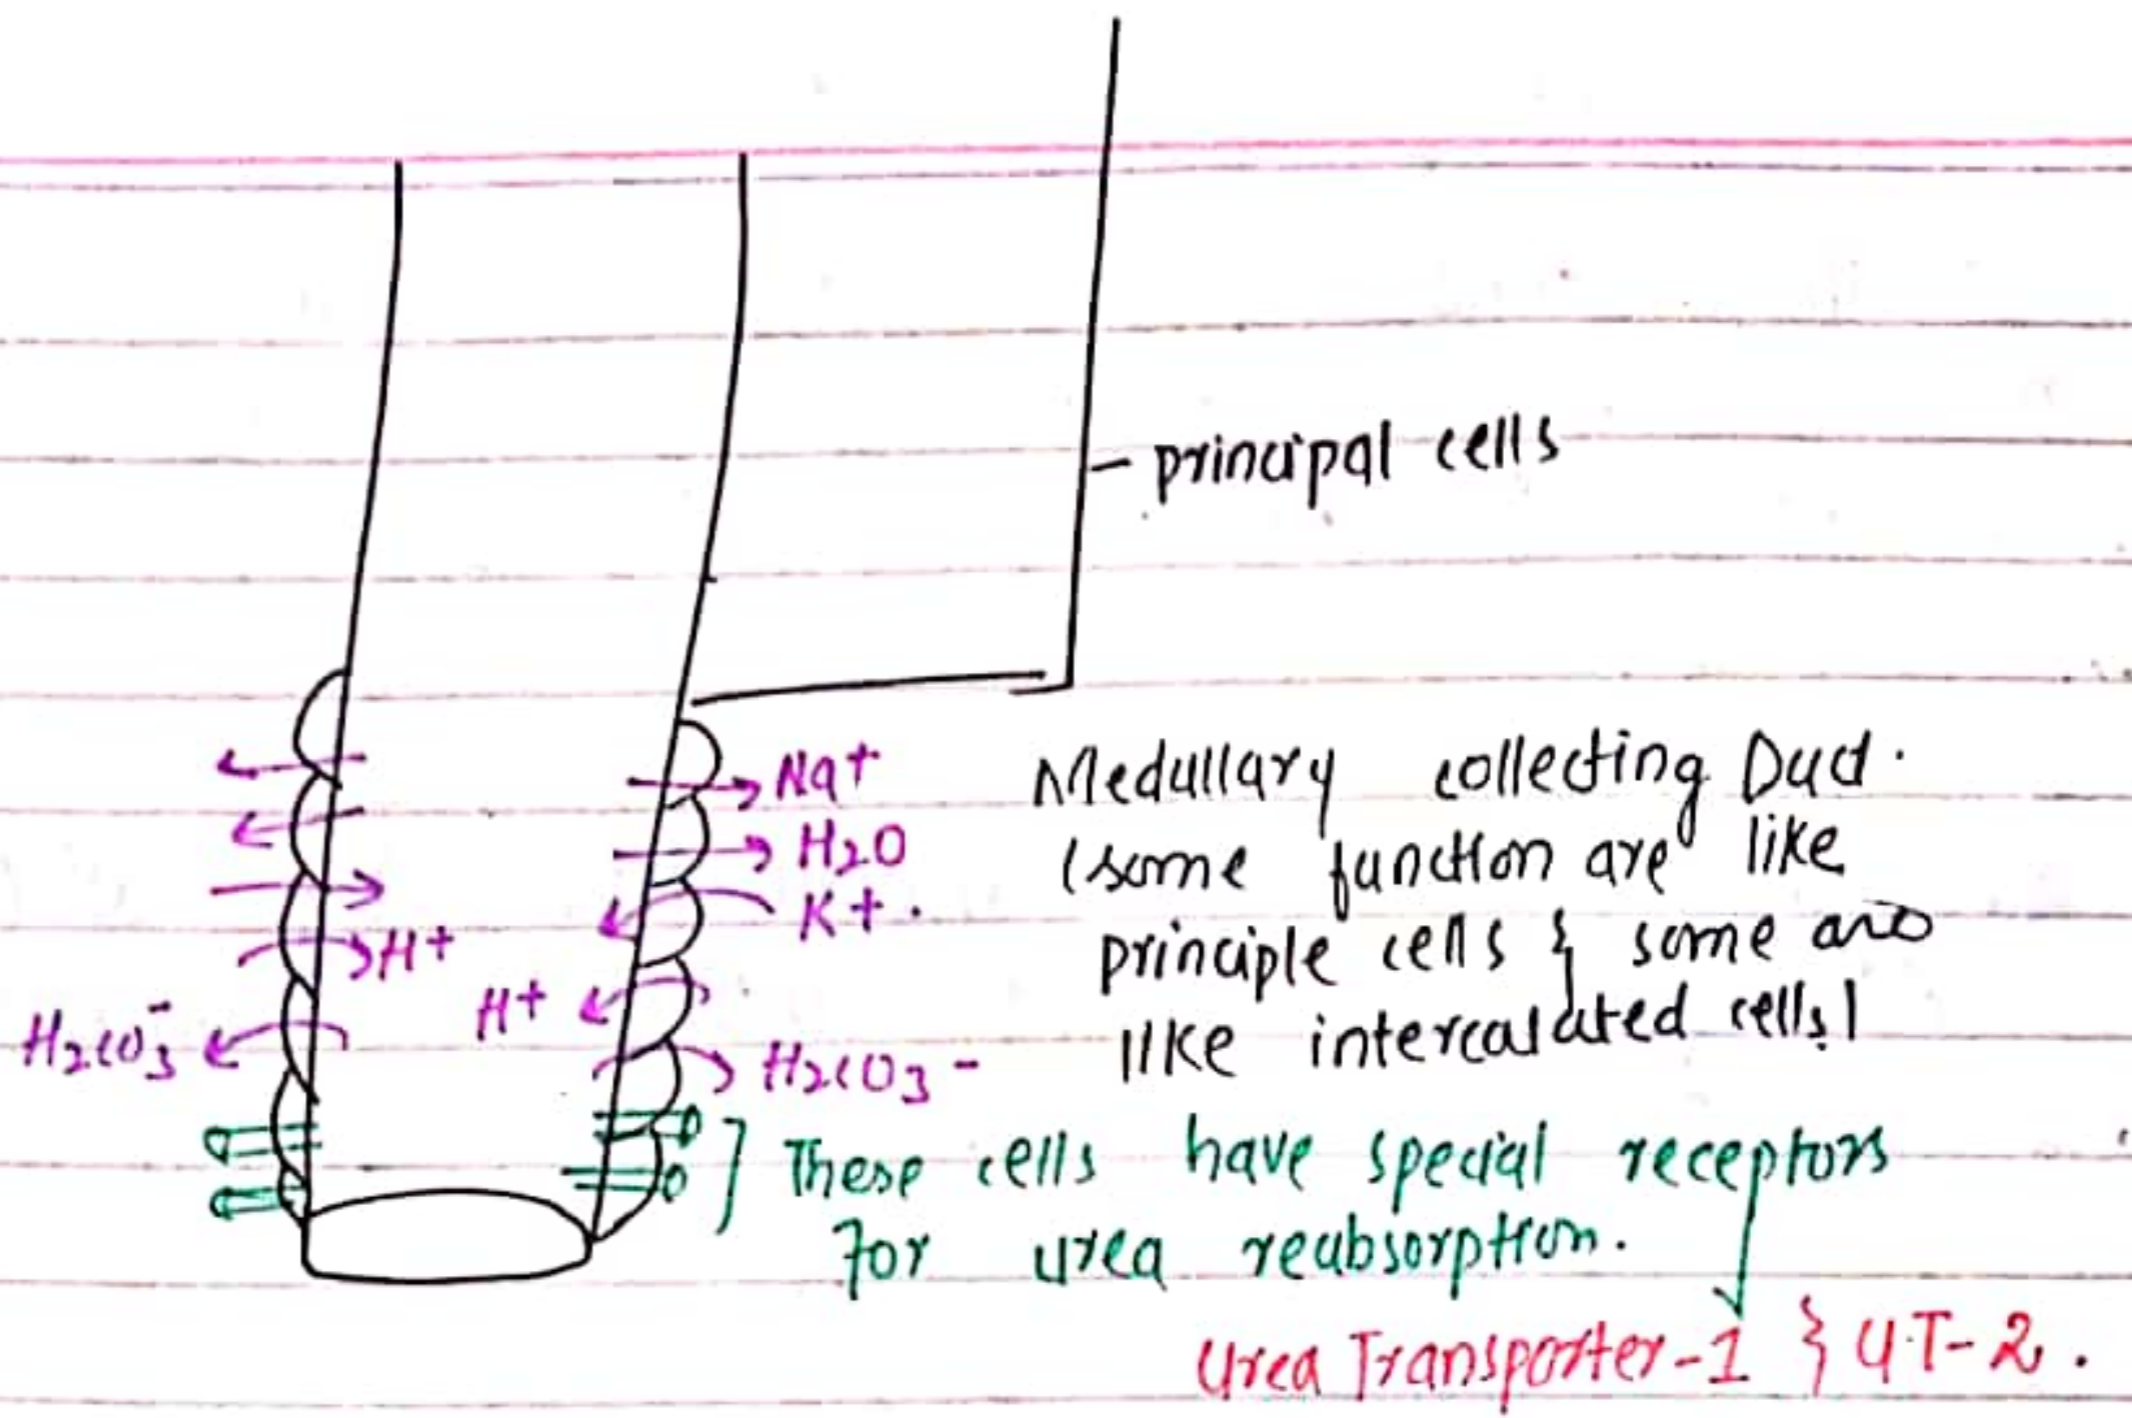 - principal cells
Na+
H2O
K+.
H+
H+
H2CO3-
H2CO3-
Medullary collecting Duct.
(some function are like
principle cells & some are
like intercalated cells)
These cells have special receptors
for urea reabsorption.
Urea Transporter-1 & UT-2.